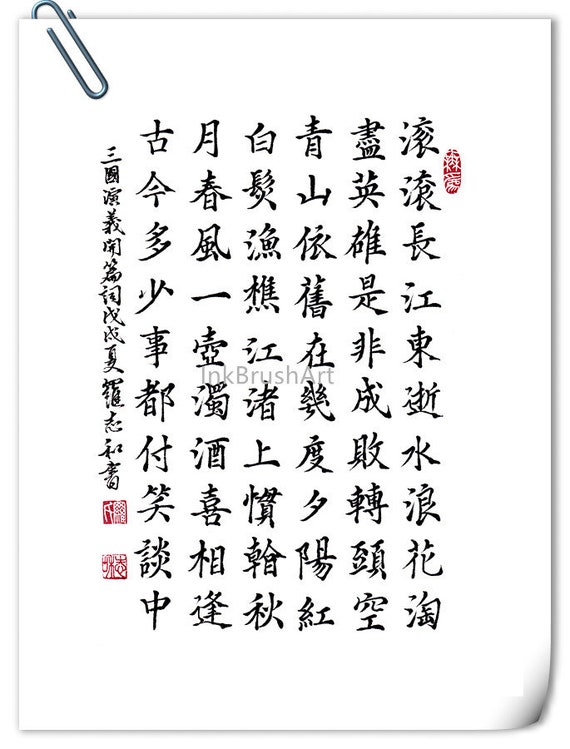 滚滚長江東逝水浪花淘
盡英雄是非成敗轉頭空
青山依舊在幾度夕陽紅
白髮漁樵江渚上慣看秋
月春風一壺濁酒喜相逢
古今多少事都付笑談中
三國演義開篇詞戊戌夏羅志和書
InkBrushArt